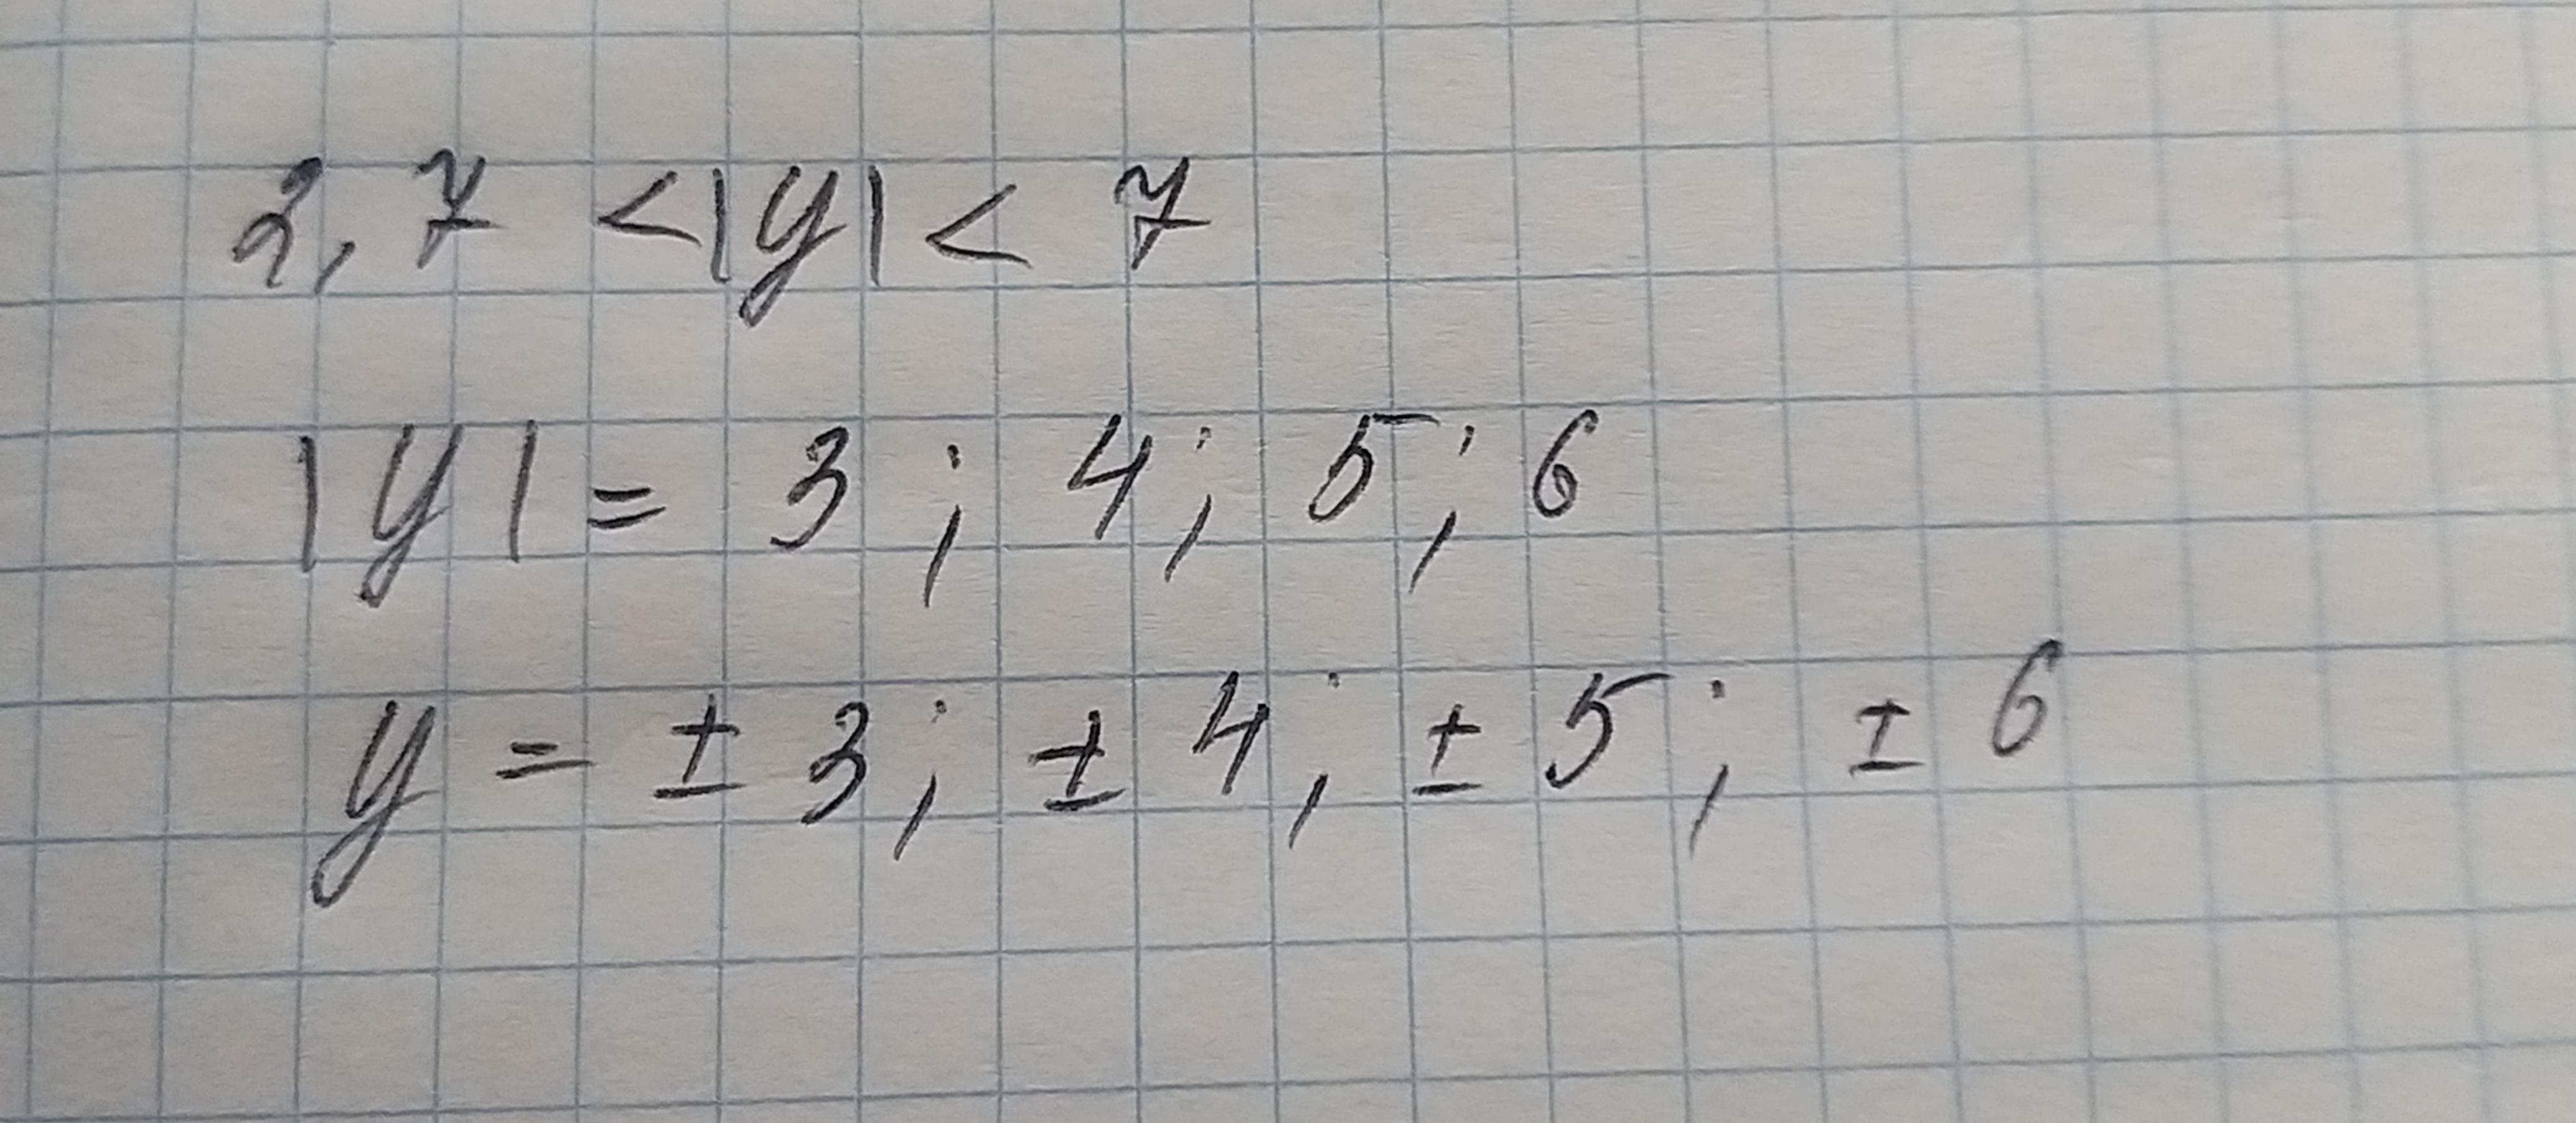 2,7 <|y|< 7
|y|= 3; 4; 5; 6
y = ± 3; ± 4; ± 5; ± 6